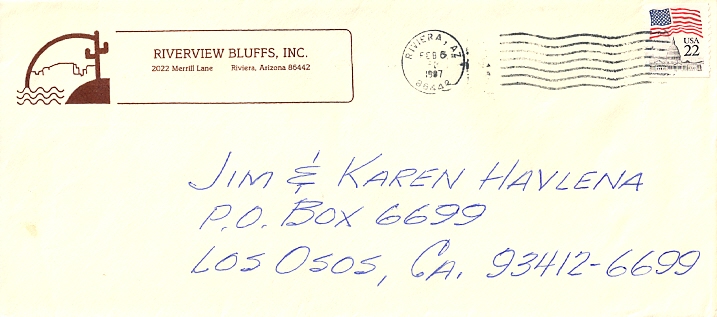 RIVERVIEW BLUFFS, INC.
2022 Merrill Lane Riviera, Arizona 86442
RIVIERA, AZ
FEB 6
1987
86442
USA
22
JIM & KAREN HAVLENA
P.O. BOX 6699
LOS OSOS, CA. 93412-6699